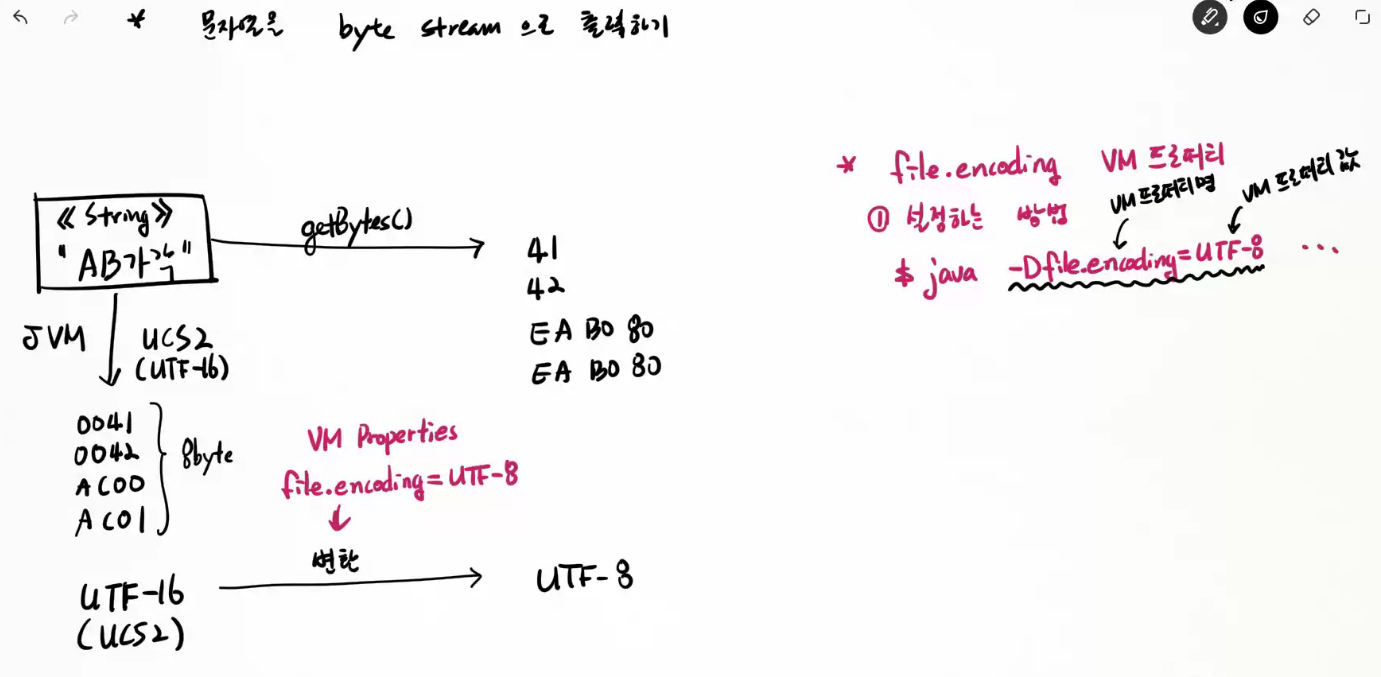 * 문자열을 byte stream 으로 출력하기
《String》
"AB가각"
getBytes()
41
42
EA B0 80
EA B0 80
JVM
UCS2
(UTF-16)
0041
0042
AC00
AC01
8byte
VM Properties
file.encoding=UTF-8
변환
UTF-16
(UCS2)
UTF-8
* file.encoding VM 프로퍼티
① 설정하는 방법
VM 프로퍼티명
VM 프로퍼티 값
$ java -Dfile.encoding=UTF-8 ...